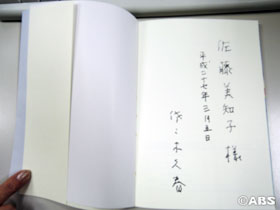 佐藤美知子様
平成二十七年三月五日
佐々木久春
©ABS